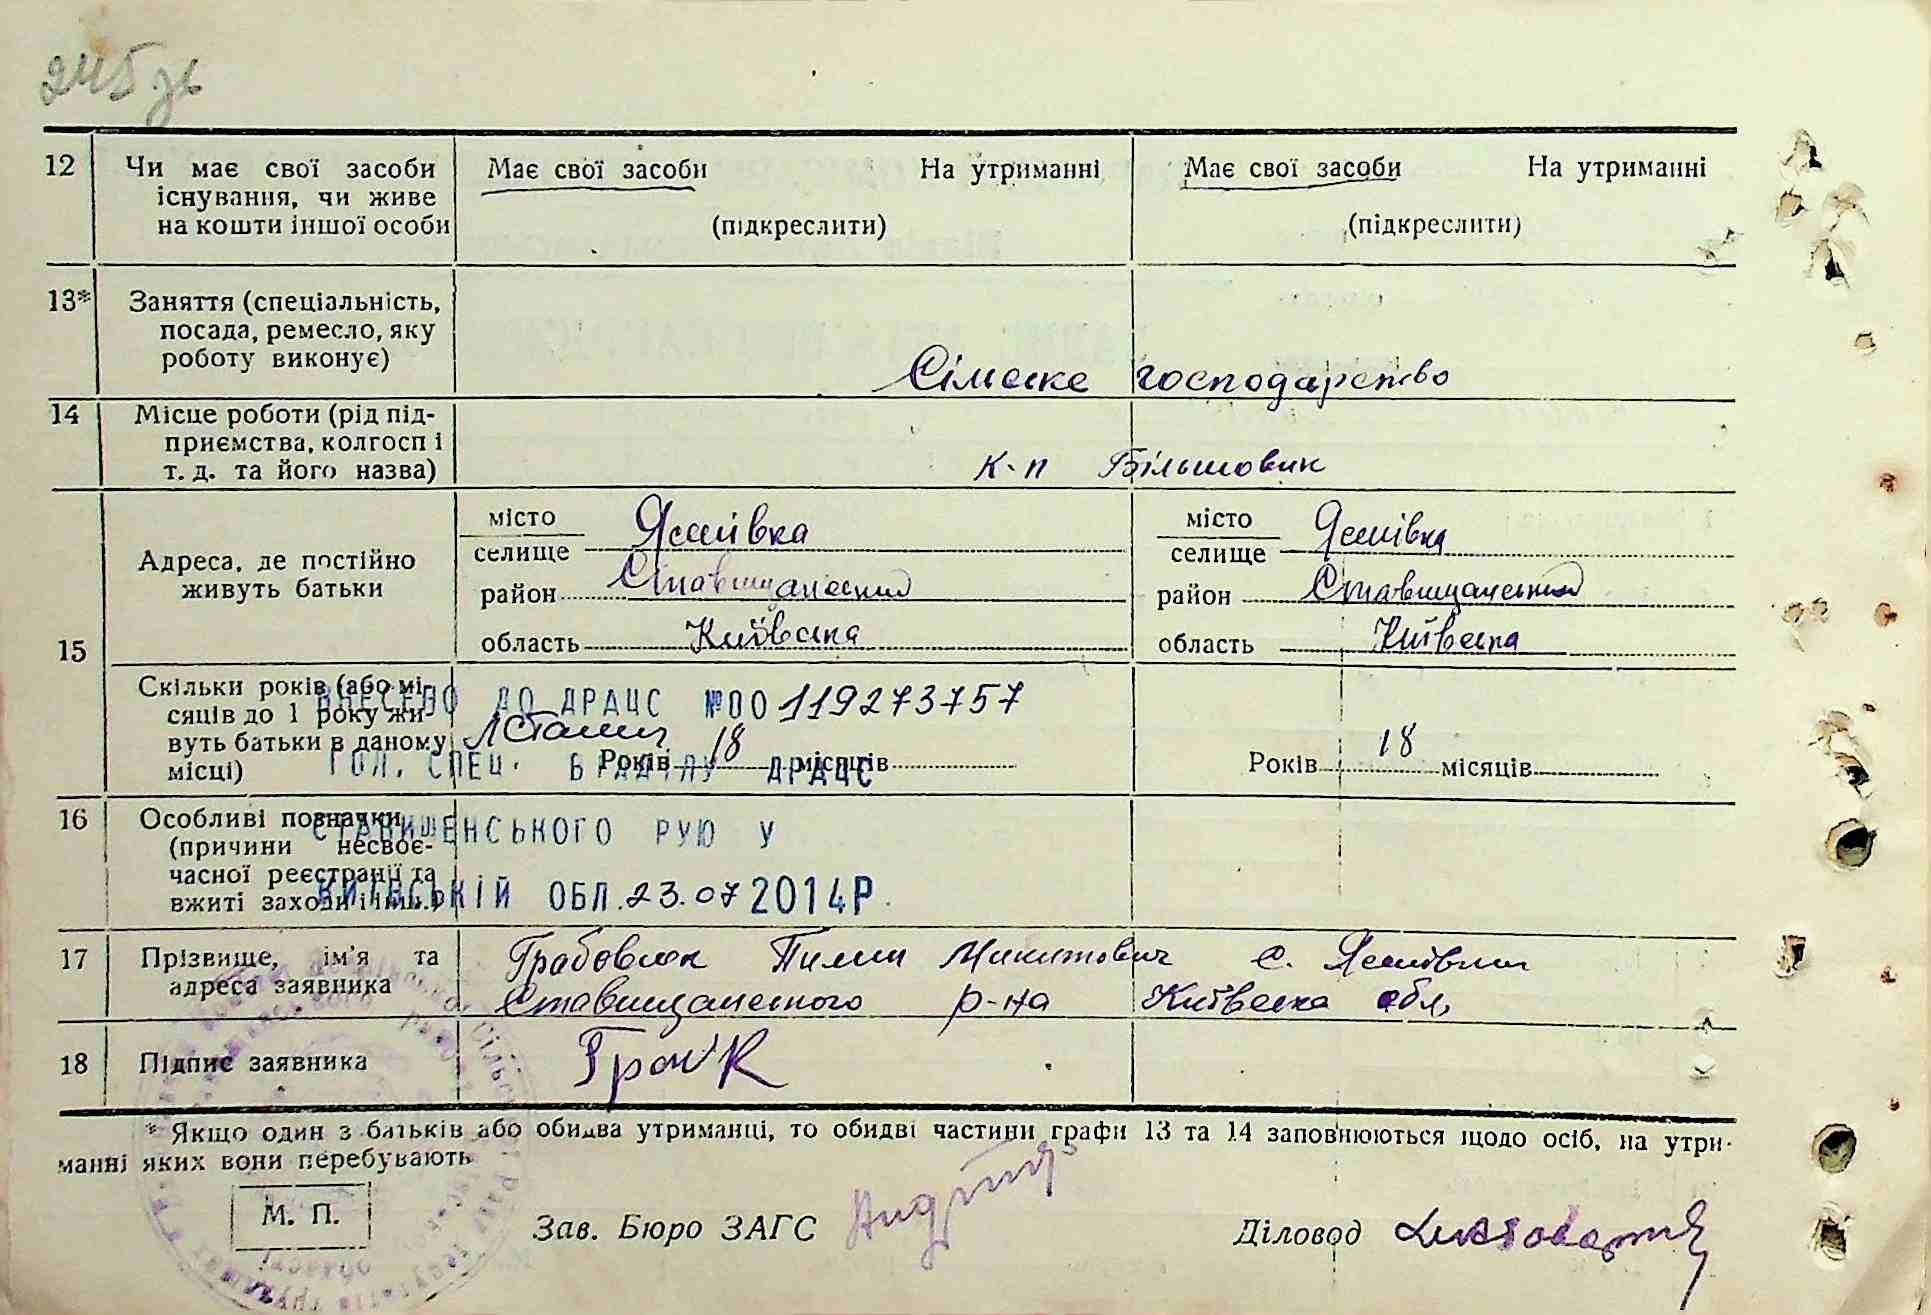 245 зв
12 Чи має свої засоби Має свої засоби На утриманні Має свої засоби На утриманні
існування, чи живе
на кошти іншої особи (підкреслити) (підкреслити)
13* Заняття (спеціальність,
посада, ремесло, яку
роботу виконує) Сільське господарство
14 Місце роботи (рід під-
приємства, колгосп і
т. д. та його назва) к-п Більшовик
15 Адреса, де постійно
живуть батьки
місто Ясинівка місто Ясинівка
селище селище
район Ставищанський район Ставищанський
область Київська область Київська
Скільки років (або мі-
сяців до 1 року жи-
вуть батьки в даному
місці) Років 18 місяців Років 18 місяців
ВНЕСЕНО ДО ДРАЦС №00119273757
ГОЛ. СПЕЦ. ДРАЦС
СТАВИЩЕНСЬКОГО РУЮ У
КИЇВСЬКІЙ ОБЛ. 23.07 2014Р.
16 Особливі позначки
(причини несвоє-
часної реєстрації та
вжиті заходи і інш.)
17 Прізвище, ім'я та
адреса заявника
Грабовлюк Пилип Микитович с. Ясинівки
Ставищанського р-на Київська обл,
18 Підпис заявника
* Якщо один з батьків або обидва утриманці, то обидві частини графи 13 та 14 заповнюються щодо осіб, на утри-
манні яких вони перебувають
М. П. Зав. Бюро ЗАГС Діловод